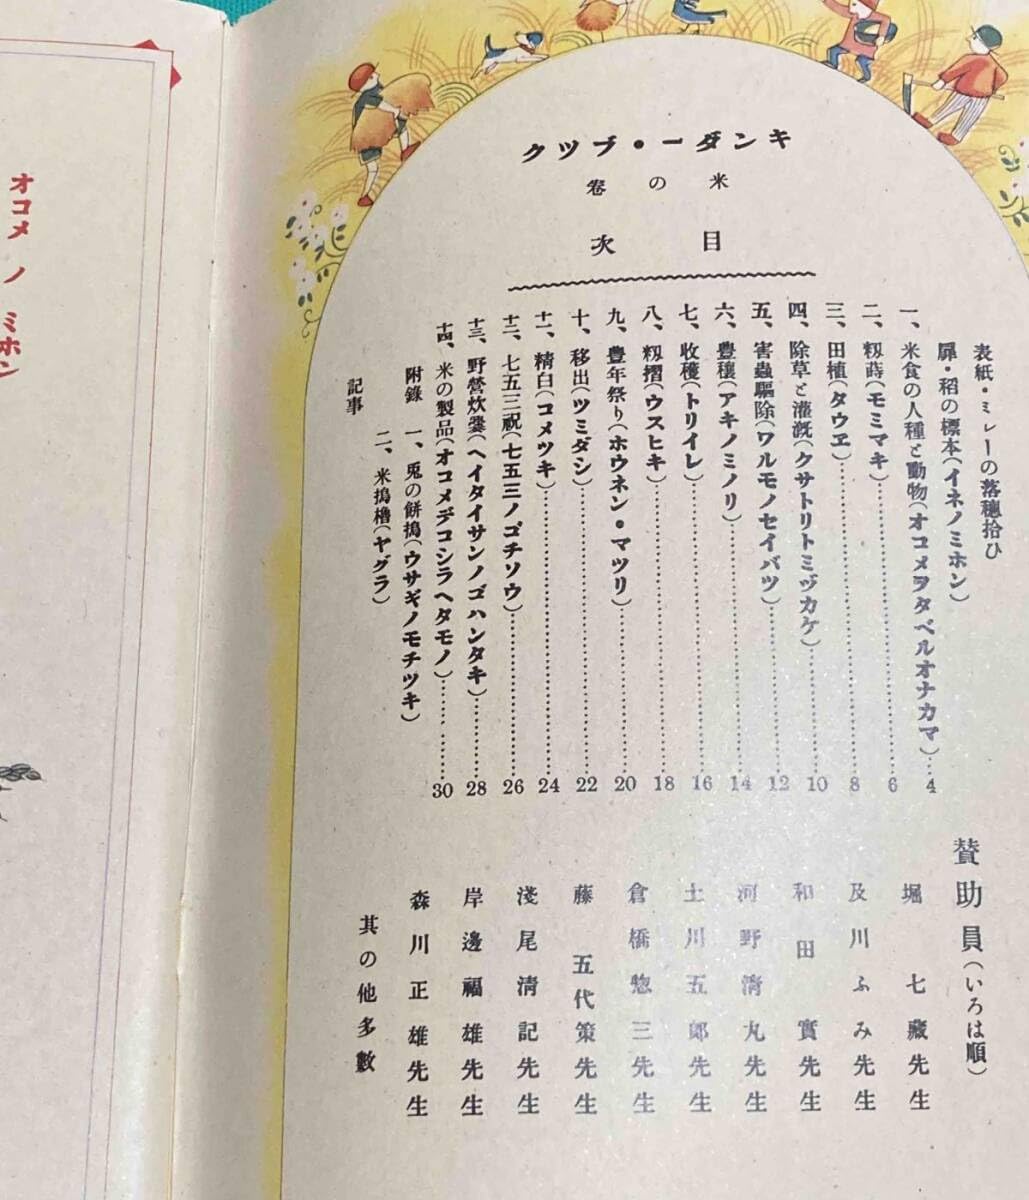 クツブ・ーダンキ
卷の米
次目
表紙・ミレーの落穗拾ひ
扉・稻の標本(イネノミホン)
一、米食の人種と動物(オコメヲタベルオナカマ)…4
二、籾蒔(モミマキ)…6
三、田植(タウヱ)…8
四、除草と灌漑(クサトリトミヅカケ)…10
五、害蟲驅除(ワルモノセイバツ)…12
六、豐穰(アキノミノリ)…14
七、收穫(トリイレ)…16
八、籾摺(ウスヒキ)…18
九、豐年祭り(ホウネン・マツリ)…20
十、移出(ツミダシ)…22
十一、精白(コメツキ)…24
十二、七五三祝(七五三ノゴチソウ)…26
十三、野營炊爨(ヘイタイサンノゴハンタキ)…28
十四、米の製品(オコメデコシラヘタモノ)…30
附錄 一、兎の餅搗(ウサギノモチツキ)
二、米搗櫓(ヤグラ)
記事
贊助員(いろは順)
堀七藏先生
及川ふみ先生
和田實先生
河野淸丸先生
土川五郎先生
倉橋惣三先生
藤五代策先生
淺尾淸記先生
岸邊福雄先生
森川正雄先生
其の他多數
オコメ ノ ミホン